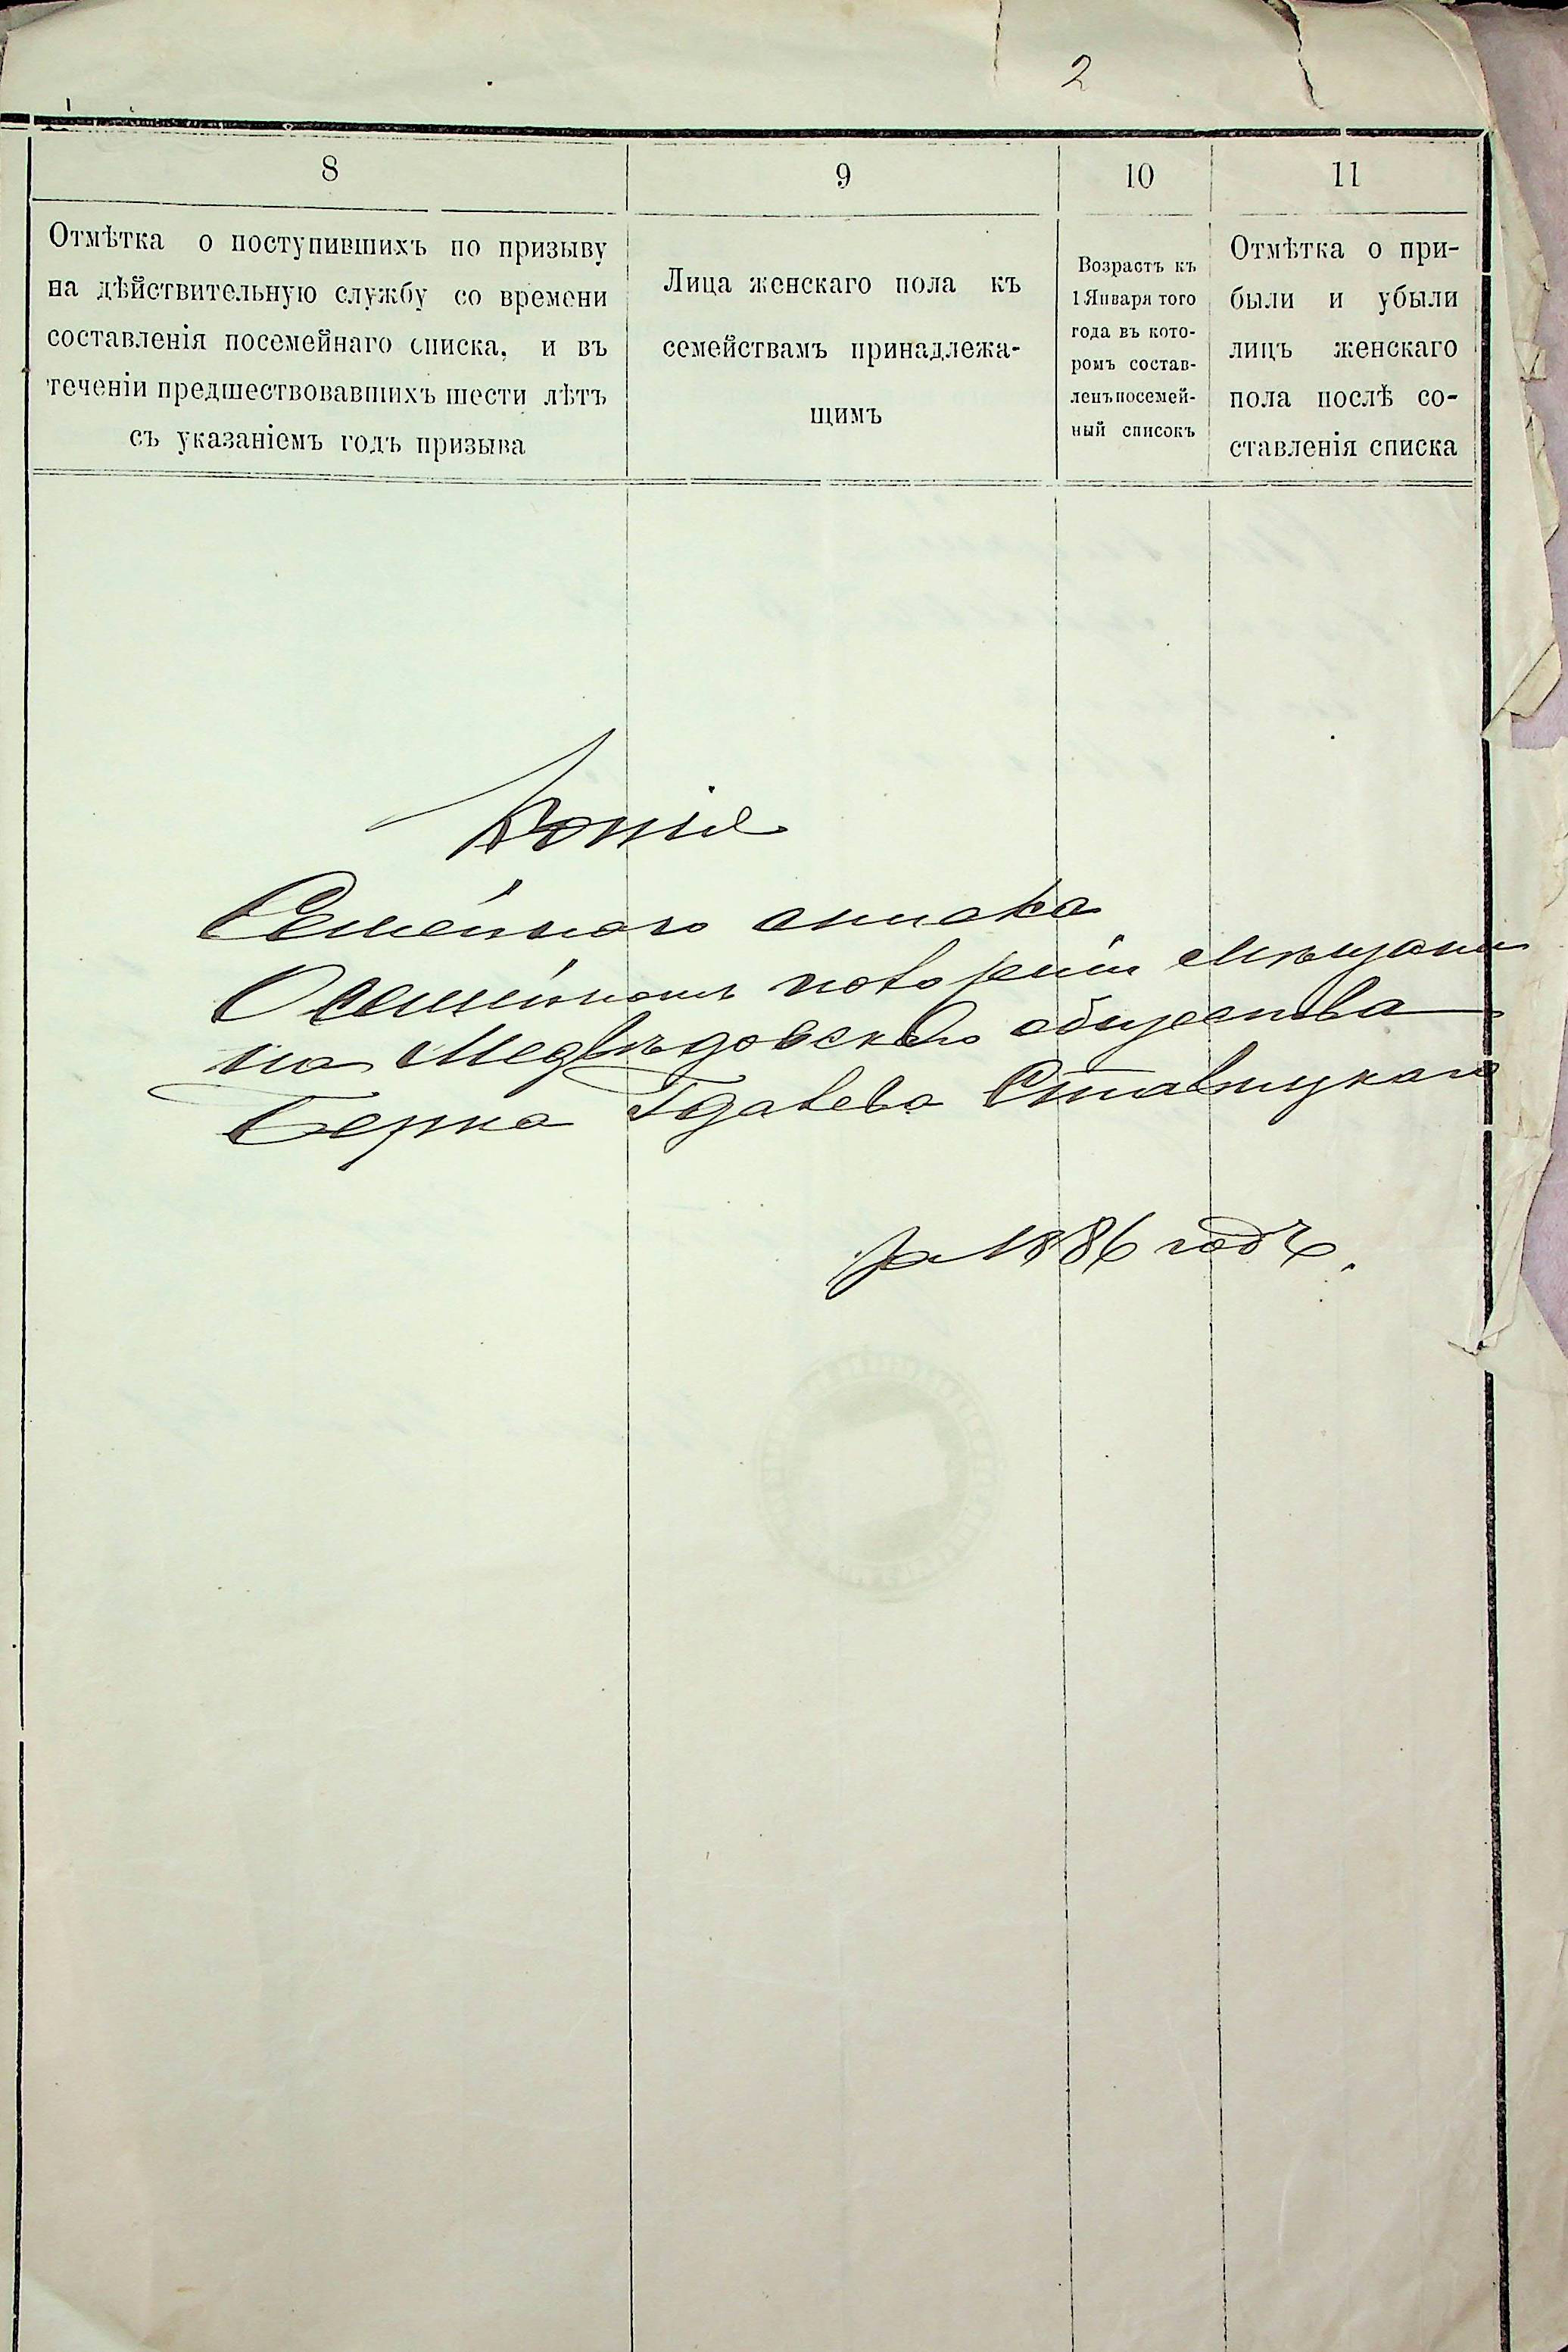 2
8
Отмѣтка о поступившихъ по призыву
на дѣйствительную службу со времени
составленія посемейнаго списка, и въ
теченіи предшествовавшихъ шести лѣтъ
съ указаніемъ годъ призыва
9
Лица женскаго пола къ
семействамъ принадлежа-
щимъ
10
Возрастъ къ
1 Января того
года въ кото-
ромъ состав-
ленъ посемей-
ный списокъ
11
Отмѣтка о при-
были и убыли
лицъ женскаго
пола послѣ со-
ставленія списка
Копія
Семейнаго списка
О семейномъ положеніи мѣщани
на Медвѣдовскаго общества
Берка Ставицкаго
за 1886 годъ.